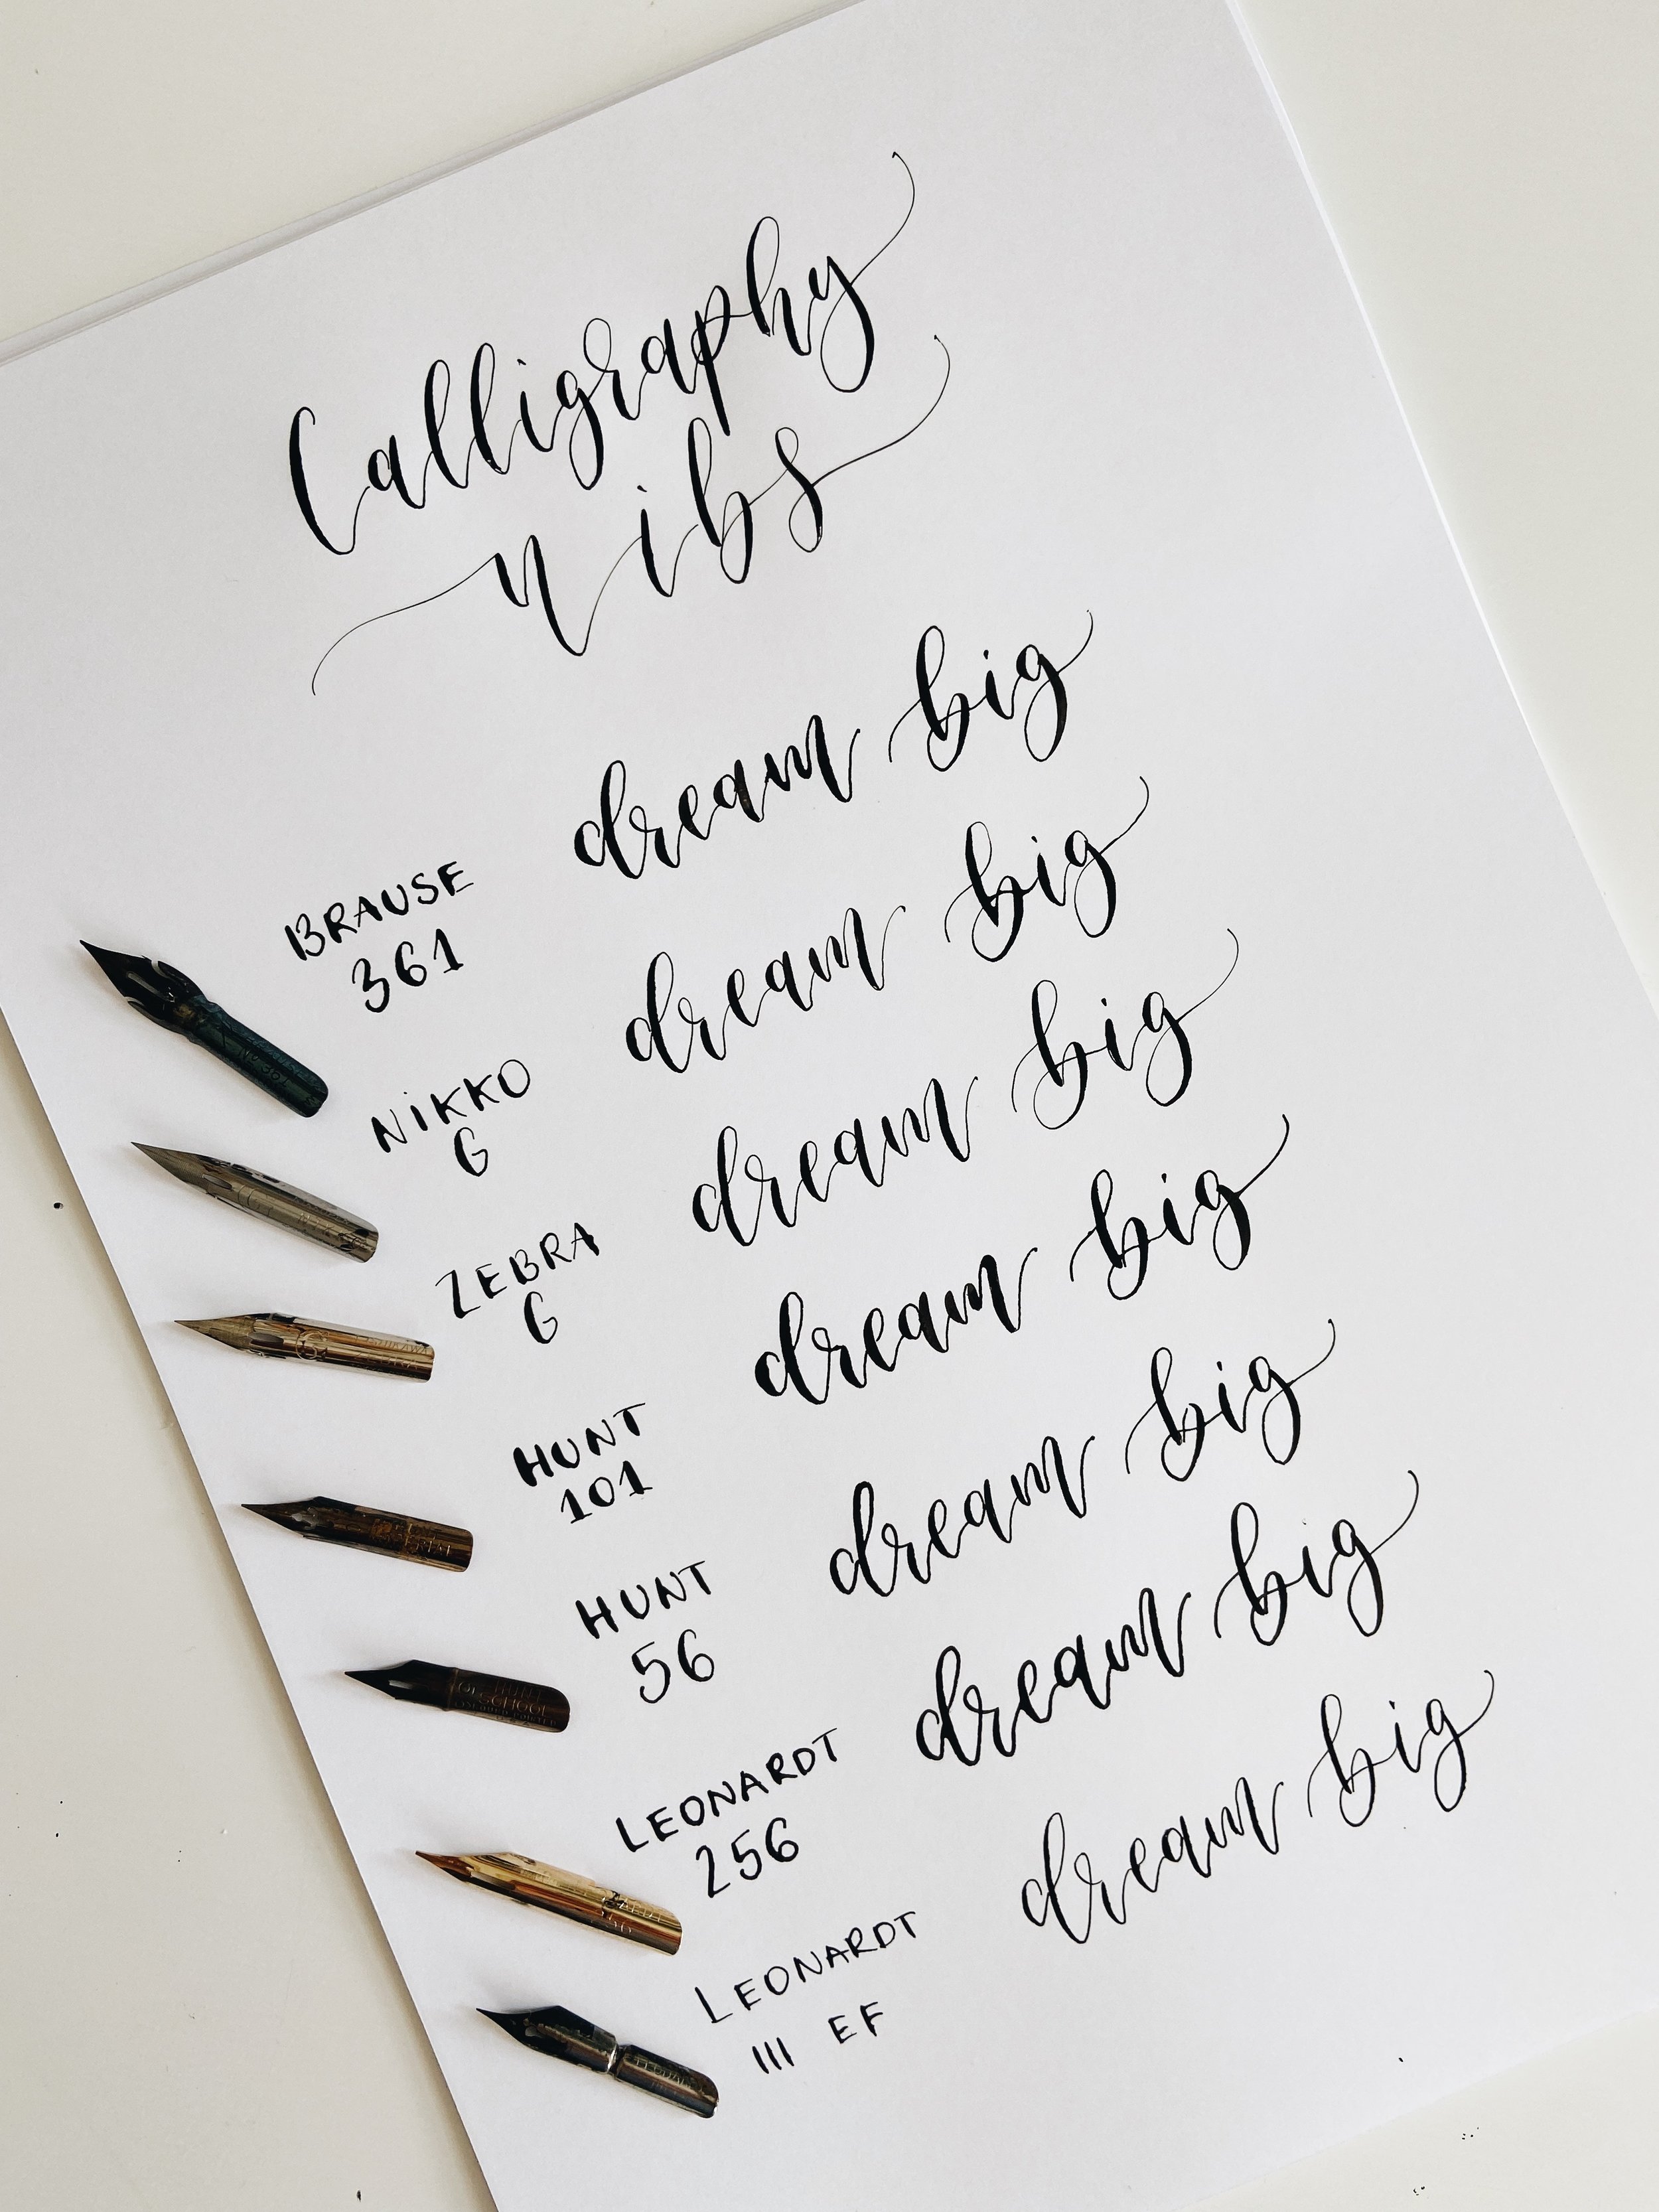 Calligraphy
nibs
dream big
BRAUSE
361
dream big
NIKKO
G
dream big
ZEBRA
G
dream big
HUNT
101
dream big
HUNT
56
dream big
LEONARDT
256
dream big
LEONARDT
111 EF